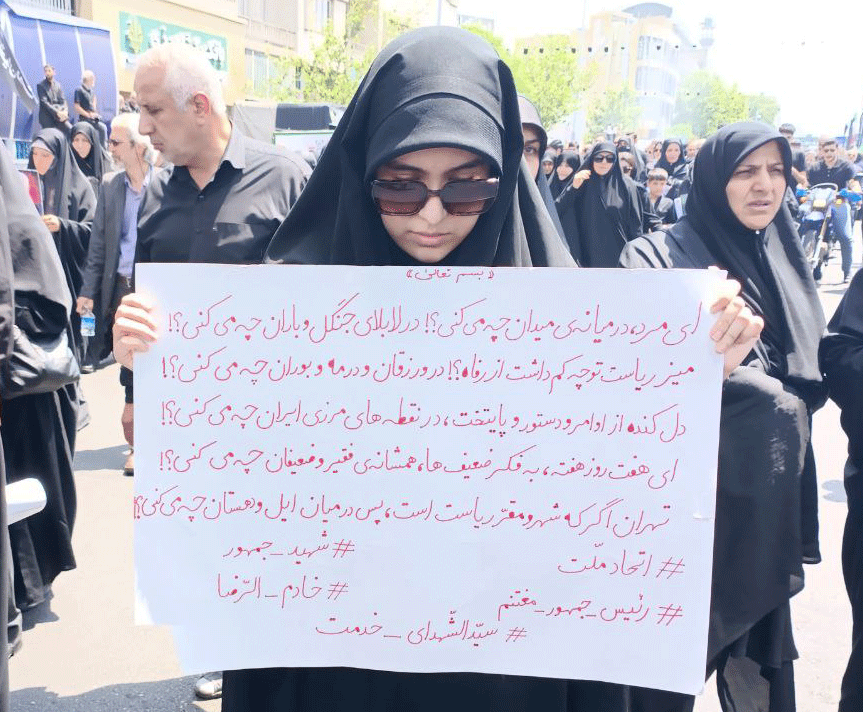 «بسم تعالیٰ»
ای مرد، در میانه‌ی میدان چه می کنی؟! در لابلای جنگل و باران چه می کنی؟!
میز ریاست تو چه کم داشت از رفاه؟! در ورزقان و در مه و بوران چه می کنی؟!
دل کنده از اوامر و دستور و پایتخت، در نقطه های مرزی ایران چه می کنی؟!
ای هفت روز هفته، به فکر ضعیف ها، همشانه‌ی فقیر و ضعیفان چه می کنی؟!
تهران اگر که شهر و مقرّ ریاست است، پس در میان ایل و دهستان چه می کنی؟!
# اتحاد ملّت
# شهید_جمهور
# رئیس_جمهور_مغتنم
# خادم_الرّضا
# سیّدالشّهدای_خدمت